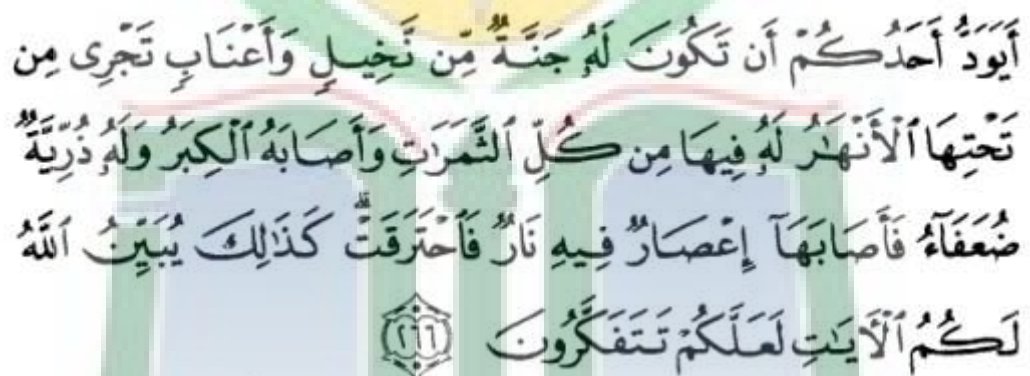 أَيَوَدُّ أَحَدُكُمْ أَن تَكُونَ لَهُۥ جَنَّةٌ مِّن نَّخِيلٍ وَأَعْنَابٍ تَجْرِى مِن
تَحْتِهَا ٱلْأَنْهَـٰرُ لَهُۥ فِيهَا مِن كُلِّ ٱلثَّمَرَٰتِ وَأَصَابَهُ ٱلْكِبَرُ وَلَهُۥ ذُرِّيَّةٌ
ضُعَفَآءُ فَأَصَابَهَآ إِعْصَارٌ فِيهِ نَارٌ فَٱحْتَرَقَتْ ۗ كَذَٰلِكَ يُبَيِّنُ ٱللَّهُ
لَكُمُ ٱلْـَٔايَـٰتِ لَعَلَّكُمْ تَتَفَكَّرُونَ ٢٦٦